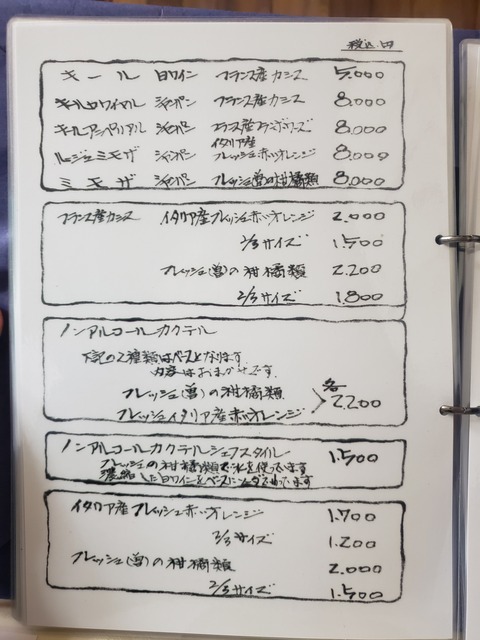 税込 円
キール 白ワイン フランス産カシス 5,000
キールロワイヤル シャンパン フランス産カシス 8,000
キールアンペリアル シャンパン フランス産フランボワーズ 8,000
イタリア産
ルージュミモザ シャンパン フレッシュ赤いオレンジ 8,000
ミモザ シャンパン フレッシュ(旬)の柑橘類 8,000
フランス産カシス イタリア産フレッシュ赤いオレンジ 2,000
2/3サイズ 1,500
フレッシュ(旬)の柑橘類 2,200
2/3サイズ 1,800
ノンアルコールカクテル
下記の2種類はベースとなります
内容はおまかせです.
フレッシュ(旬)の柑橘類
各 2,200
フレッシュイタリア産赤いオレンジ
ノンアルコールカクテルシェフスタイル 1,500
フレッシュの柑橘類で氷を使っています
濃縮した白ワインをベースに
イタリア産フレッシュ赤いオレンジ 1,700
2/3サイズ 1,200
フレッシュ(旬)の柑橘類 2,000
2/3サイズ 1,500